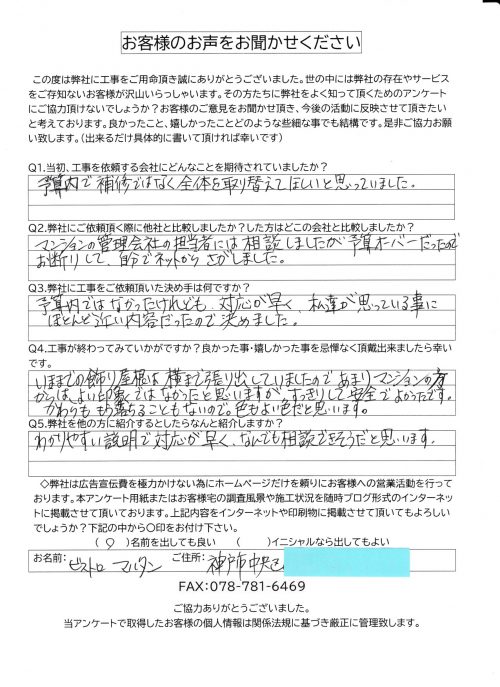 お客様のお声をお聞かせください
この度は弊社に工事をご用命頂き誠にありがとうございました。世の中には弊社の存在やサービス
をご存知ないお客様が沢山いらっしゃいます。その方たちに弊社をよく知って頂くためのアンケート
にご協力頂けないでしょうか?お客様のご意見をお聞かせ頂き、今後の活動に反映させて頂きたい
と考えております。良かったこと、嬉しかったことどのような些細な事でも結構です。是非ご協力お願
い致します。(出来るだけ具体的に書いて頂ければ幸いです)
Q1.当初、工事を依頼する会社にどんなことを期待されていましたか?
予算内で補修ではなく全体を取り替えてほしいと思っていました。
Q2.弊社にご依頼頂く際に他社と比較しましたか?した方はどこの会社と比較しましたか?
マンションの管理会社の担当者には相談しましたが予算オーバーだったので
お断りして、自分でネットからさがしました。
Q3.弊社に工事をご依頼頂いた決め手は何ですか?
予算内ではなかったけれども、対応が早く、私達が思っている事に
ほとんど近い内容だったので決めました。
Q4.工事が終わってみていかがですか?良かった事・嬉しかった事を忌憚なく頂戴出来ましたら幸い
です。
いままでの飾り屋根は横まで張り出していましたのであまりマンションの方
からは、よい印象ではなかったと思いますが、すっきりして安全でよかったです。
かわらももう落ちることもないので。色もよい色だと思います。
Q5.弊社を他の方に紹介するとしたらなんと紹介しますか?
わかりやすい説明で対応が早く、なんでも相談できそうだと思います。
◇弊社は広告宣伝費を極力かけない為にホームページだけを頼りにお客様への営業活動を行って
おります。本アンケート用紙またはお客様宅の調査風景や施工状況を随時ブログ形式のインターネッ
トに掲載させて頂いております。上記内容をインターネットや印刷物に掲載させて頂いてもよろしい
でしょうか?下記の中から〇印をお付け下さい。
(○)名前を出しても良い ( )イニシャルなら出してもよい
お名前: ビストロ マルタン ご住所: 神戸市中央区
FAX:078-781-6469
ご協力ありがとうございました。
当アンケートで取得したお客様の個人情報は関係法規に基づき厳正に管理致します。